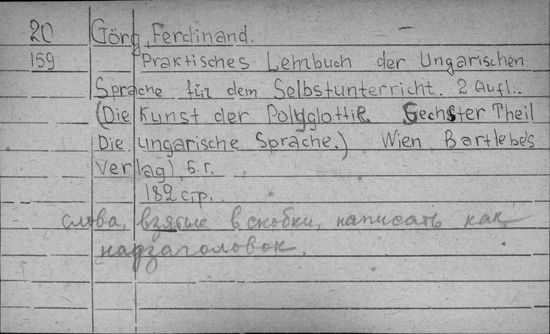 20 Görg Ferdinand.
159 Praktisches Lehrbuch der Ungarischen
Sprache für dem Selbstunterricht. 2 Aufl..
(Die Kunst der Polyglottie. Sechster Theil
Die ungarische Sprache.) Wien Bartlebes
Verlag) б.г.
182 стр.
слова, взятые в скобки, написать как
надзаголовок.